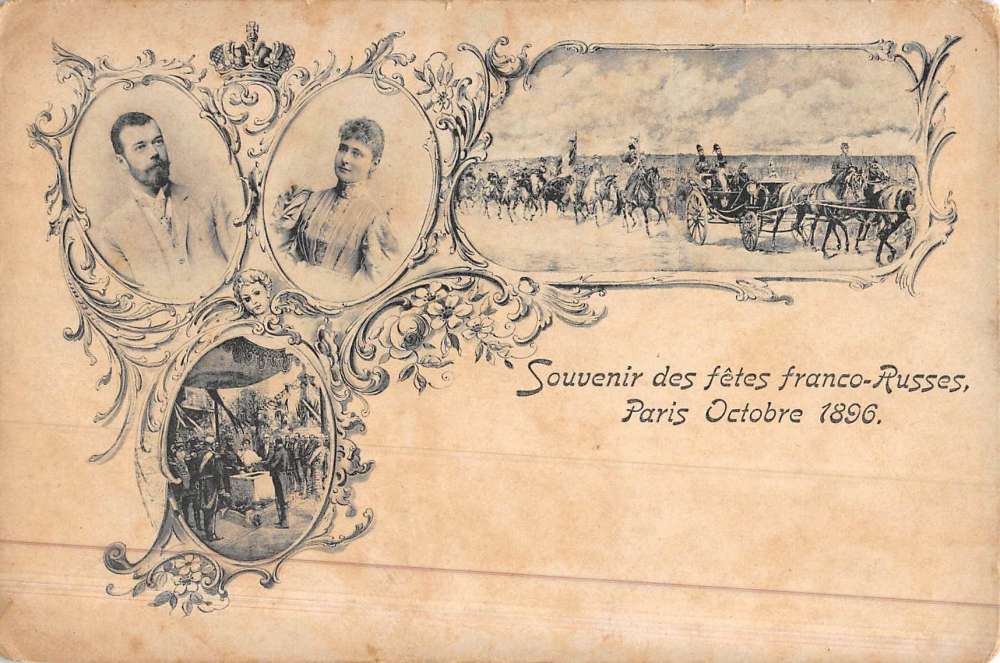 Souvenir des fêtes franco-Russes,
Paris Octobre 1896.